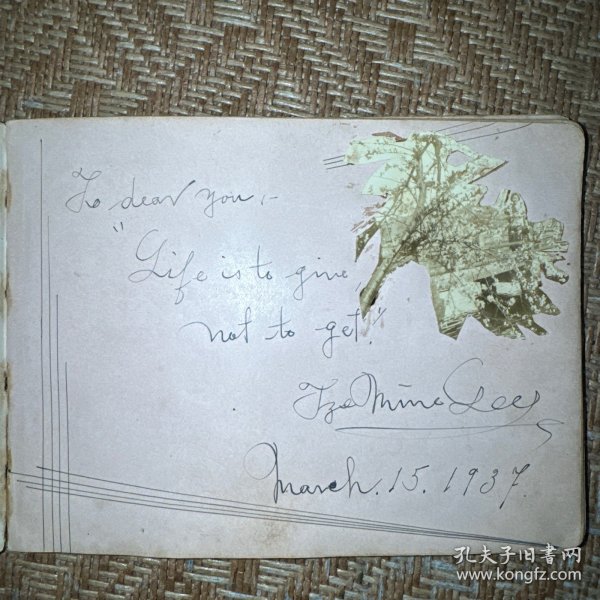 To dear you,-
"Life is to give,
not to get."
Tze Ming Lee
March. 15. 1937.
孔夫子旧书网
www.kongfz.com